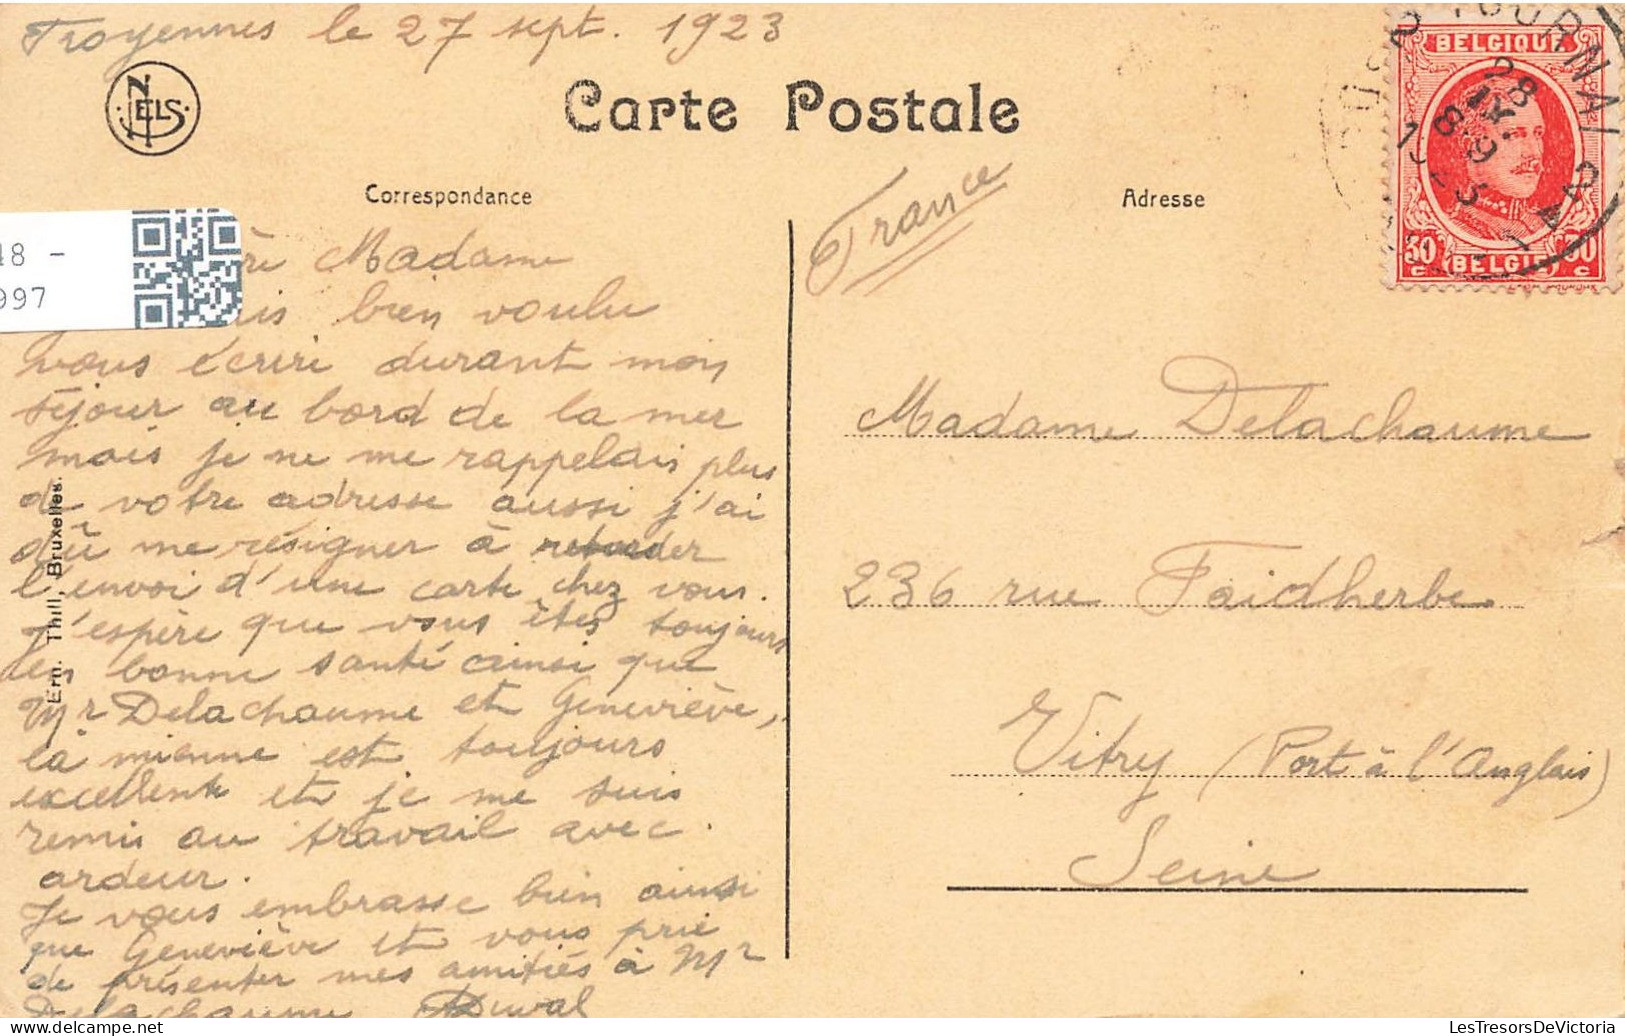 Froyennes le 27 sept. 1923
NELS
Carte Postale
Correspondance
Adresse
BELGIQUE
TOURNAI 2
28
IX
1923
30 c (BELGIE) 30 c
France
18 -
997
Madame
bien voulu
vous écrire durant mon
séjour au bord de la mer
mais je ne me rappelais plus
de votre adresse aussi j'ai
dû me résigner à retarder
l'envoi d'une carte chez vous.
J'espère que vous êtes toujours
en bonne santé ainsi que
Mr Delachaume et Geneviève,
la mienne est toujours
excellente et je me suis
remis au travail avec
ardeur.
Je vous embrasse bien ainsi
que Geneviève et vous prie
de présenter mes amitiés à Mr
Delachaume Duval
Ern. Thill, Bruxelles.
Madame Delachaume
236 rue Faidherbe
Vitry (Port à l'Anglais)
Seine
LesTresorsDeVictoria